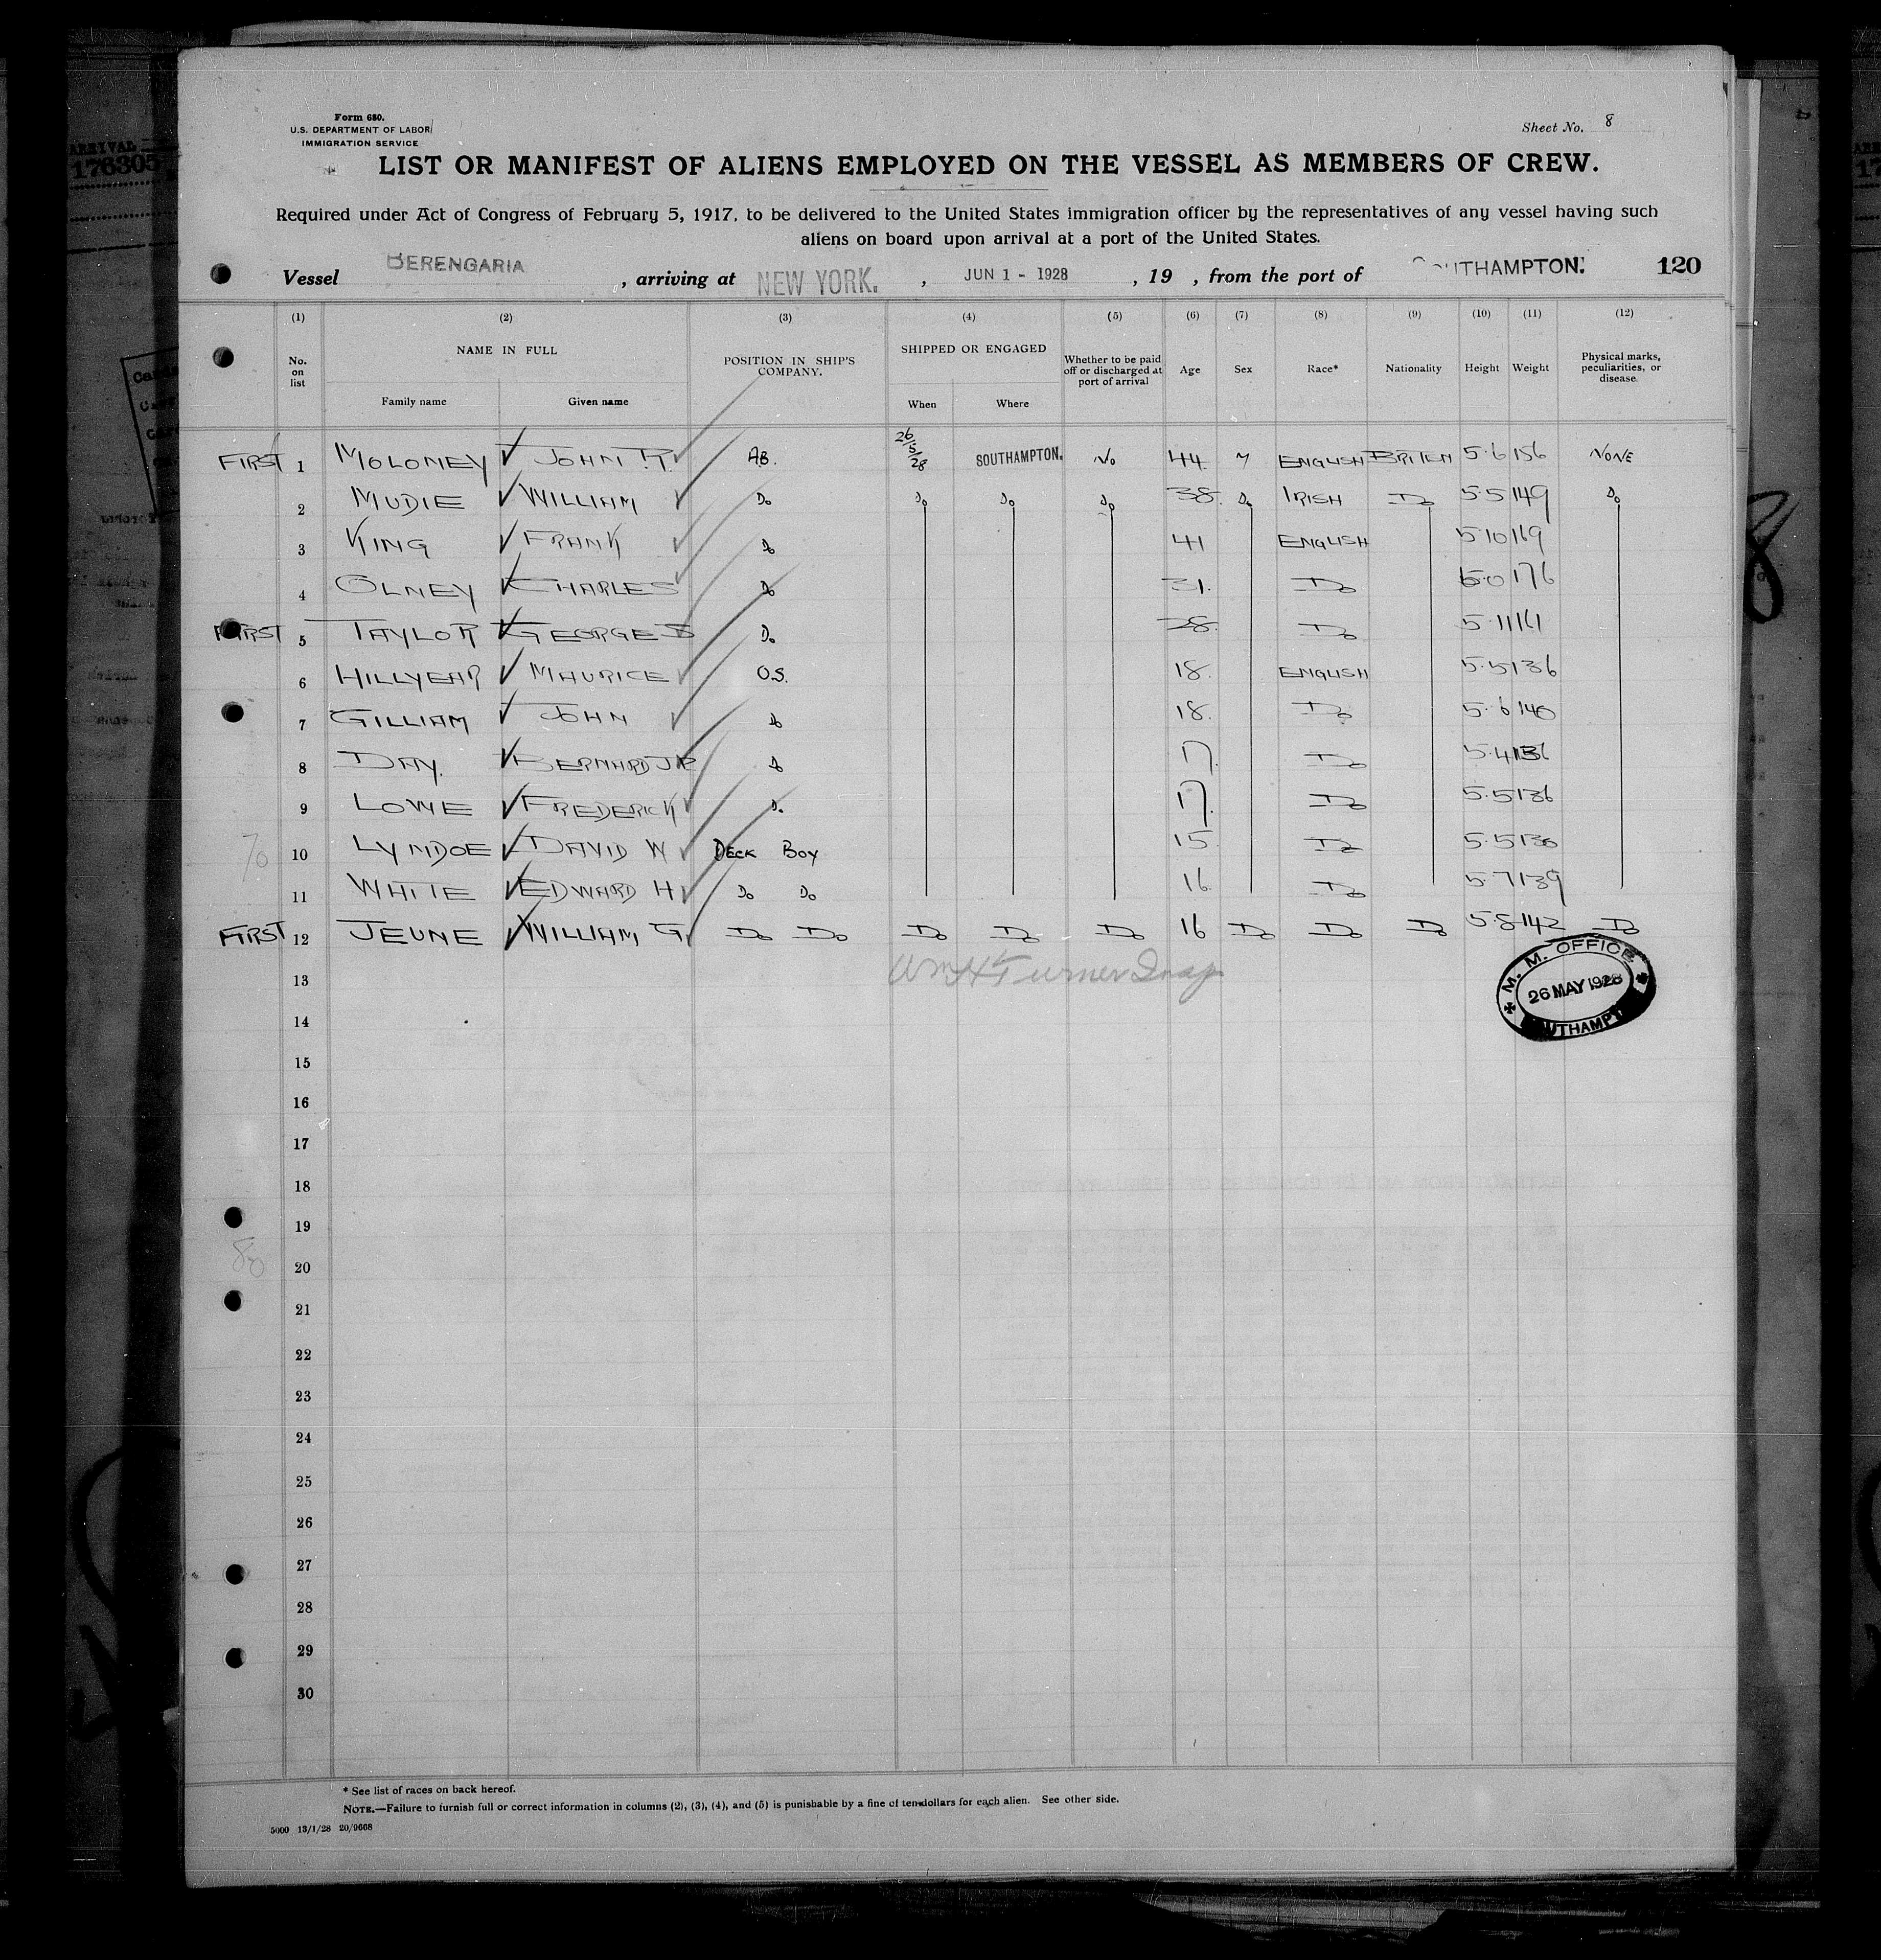 Form 680.
U.S. DEPARTMENT OF LABOR
IMMIGRATION SERVICE
Sheet No. 8
LIST OR MANIFEST OF ALIENS EMPLOYED ON THE VESSEL AS MEMBERS OF CREW.
Required under Act of Congress of February 5, 1917, to be delivered to the United States immigration officer by the representatives of any vessel having such
aliens on board upon arrival at a port of the United States.
Vessel BERENGARIA, arriving at NEW YORK., JUN 1 - 1928, 19 , from the port of SOUTHAMPTON. 120
(1) (2) (3) (4) (5) (6) (7) (8) (9) (10) (11) (12)
No. on list NAME IN FULL POSITION IN SHIP'S COMPANY. SHIPPED OR ENGAGED Whether to be paid off or discharged at port of arrival Age Sex Race* Nationality Height Weight Physical marks, peculiarities, or disease.
Family name Given name When Where
FIRST 1 MOLONEY JOHN R. AB. 26/5/28 SOUTHAMPTON. No 44 M ENGLISH BRITISH 5.6 156 NONE
2 MUDIE WILLIAM Do Do Do Do 38. Do IRISH Do 5.5 149 Do
3 KING FRANK Do 41 ENGLISH 5.10 169
4 OLNEY CHARLES Do 31. Do 6.0 176
FIRST 5 TAYLOR GEORGE S Do 28. Do 5.11 161
6 HILLYEAR MAURICE O.S. 18. ENGLISH 5.5 136
7 GILLIAM JOHN Do 18. Do 5.6 140
8 DAY. BERNARD J R Do 17. Do 5.4 136
9 LOWE FREDERICK Do 17. Do 5.5 136
70 10 LYNDOE DAVID W DECK BOY 15 Do 5.5 130
11 WHITE EDWARD H Do Do 16. Do 5.7 139
FIRST 12 JEUNE WILLIAM G. Do Do Do Do Do 16 Do Do Do 5.8 142 Do
13 Wm H Turner Insp
M. M. OFFICE
26 MAY 1928
SOUTHAMPTON
14
15
16
17
18
19
80
20
21
22
23
24
25
26
27
28
29
30
* See list of races on back hereof.
NOTE.—Failure to furnish full or correct information in columns (2), (3), (4), and (5) is punishable by a fine of ten dollars for each alien. See other side.
5000 13/1/28 20/9668
ARRIVAL
176305